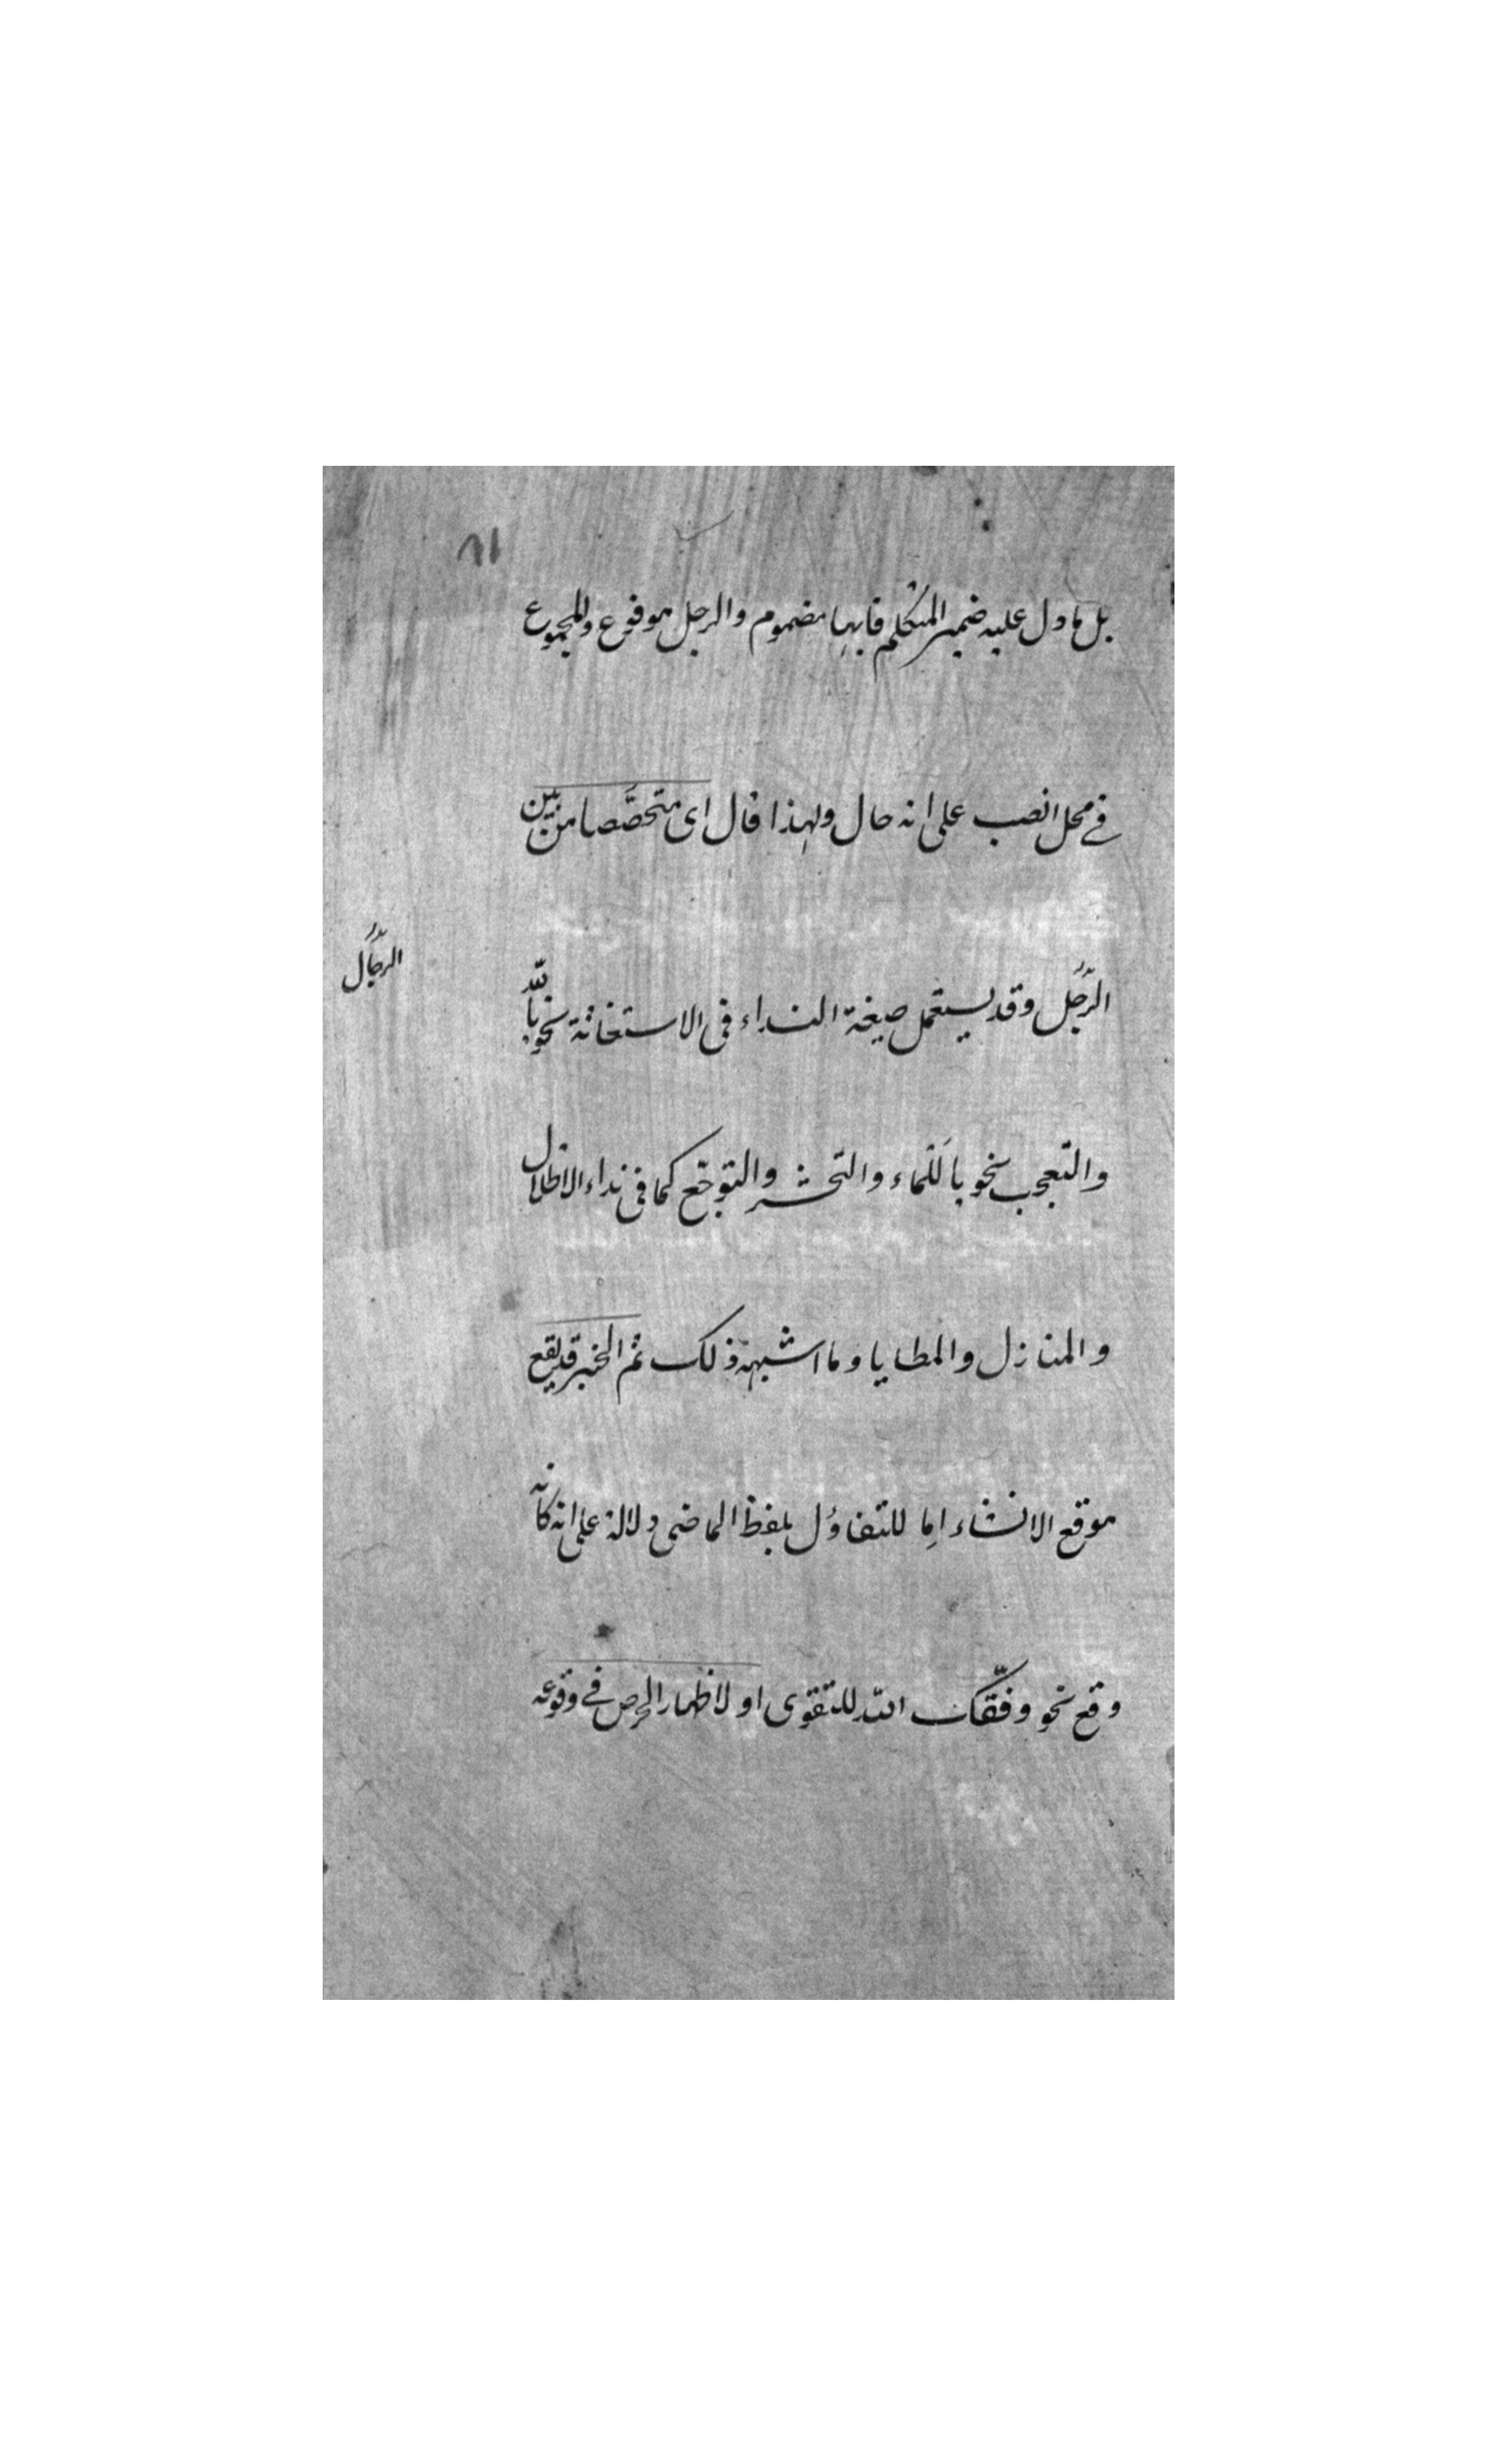 ٨١
بل ما دل عليه ضمير المتكلم فايها مضموم والرجل مرفوع والمجموع
في محل النصب على انه حال ولهذا قال اى متخصّصا من بين
الرّجل وقد يستعمل صيغة النداء فى الاستغاثة نحو يا لله
الرجال
والتعجب نحو يا للماء والتحسّر والتوجّع كما فى نداء الاطلال
والمنازل والمطايا وما اشبه ذلك ثم الخبر قد يقع
موقع الانشاء اما للتفاؤل بلفظ الماضى دلالة على انه كانه
وقع نحو وفّقك الله للتقوى او لاظهار الحرص في وقوعه